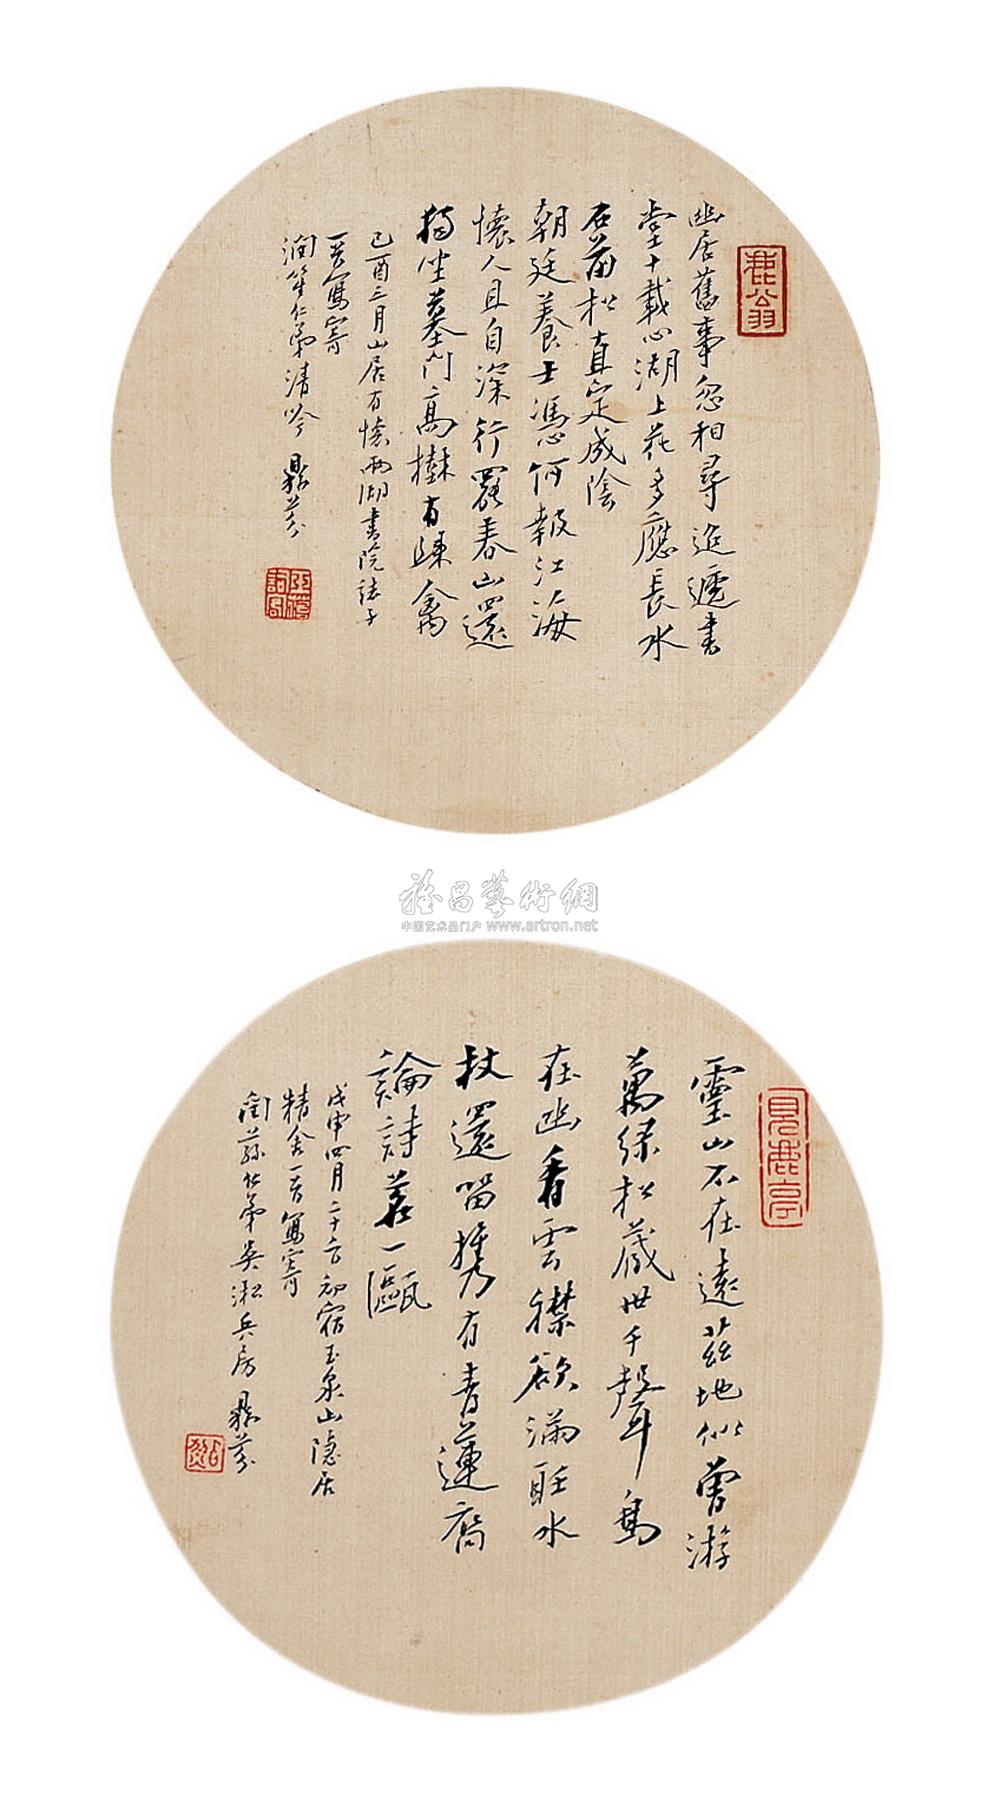 鹿翁
幽居舊事忽相尋迢遞書
堂十載心湖上花多應長水
石前松直定成陰
朝廷養士憑何報江海
懷人且自深行罷春山還
獨坐墓門高樹有棲禽
己酉三月山居有懷兩湖書院諸子
一首寫寄
潤笙仁弟清吟 鼎芬
雅昌藝術網
中国艺术品门户 www.artron.net
見鹿亭
靈山不在遠茲地似曾游
萬綠松藏世千聲鳥
在幽看雲襟欲滿聽水
杖還留攜有青蓮裔
論詩茗一甌
戊申四月二十六日初宿玉泉山隱居
精舍一首寫寄
蘅蓀仁弟吳淞兵房 鼎芬